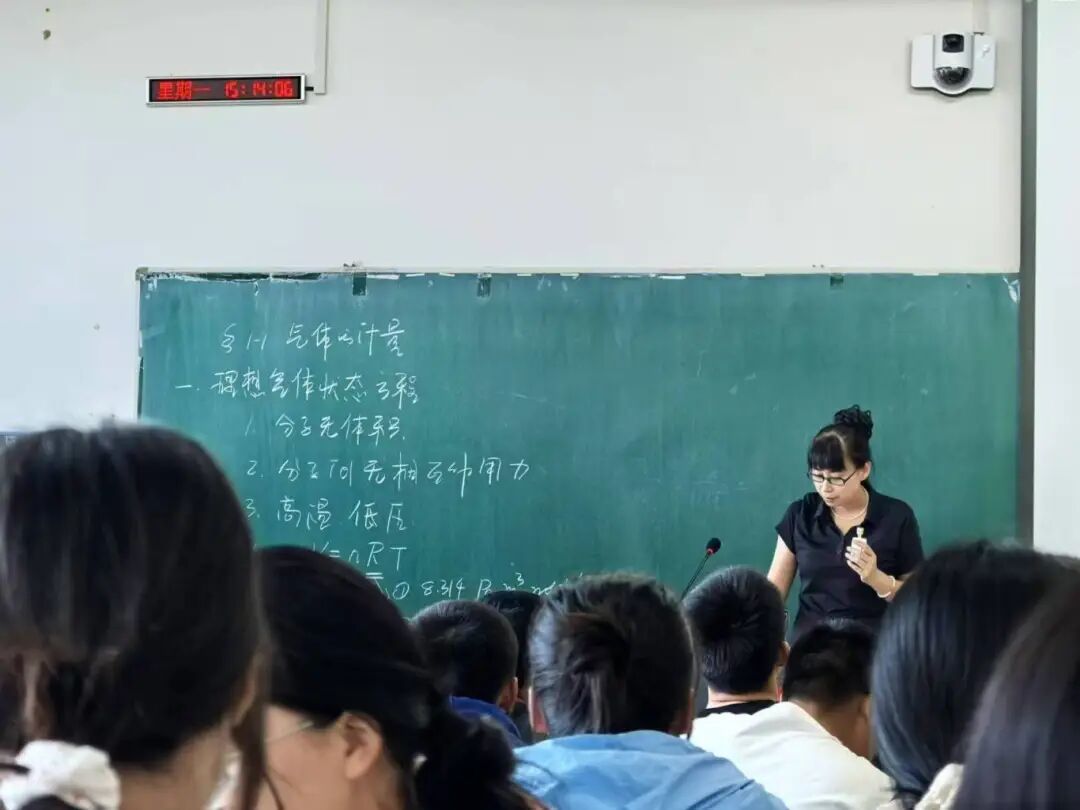 星期一 15:14:06
§1-1 气体的计量
一. 理想气体状态方程
1. 分子无体积.
2. 分子间无相互作用力
3. 高温 低压
V=nRT
① 8.314 P m³